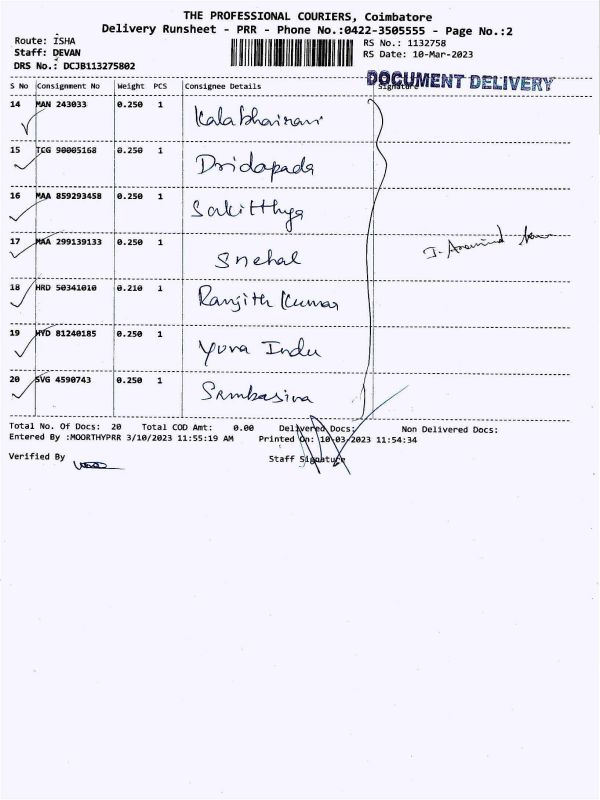 THE PROFESSIONAL COURIERS, Coimbatore
Delivery Runsheet - PRR - Phone No.:0422-3505555 - Page No.:2
Route: ISHA
Staff: DEVAN
DRS No.: DCJB113275802
RS No.: 1132758
RS Date: 10-Mar-2023
DOCUMENT DELIVERY
S No Consignment No Weight PCS Consignee Details Signature
14 MAN 243033 0.250 1 Kalabhairavi
15 TCG 90005168 0.250 1 Dridapada
16 MAA 859293458 0.250 1 Sakitthya
17 MAA 299139133 0.250 1 Snehal
18 HRD 50341010 0.210 1 Ranjith Kumar
19 HYD 81240185 0.250 1 Yuva Indu
20 SVG 4590743 0.250 1 Sambasiva
Total No. Of Docs: 20 Total COD Amt: 0.00 Delivered Docs: Non Delivered Docs:
Entered By :MOORTHYPRR 3/10/2023 11:55:19 AM Printed On: 10-03-2023 11:54:34
Verified By Staff Signature